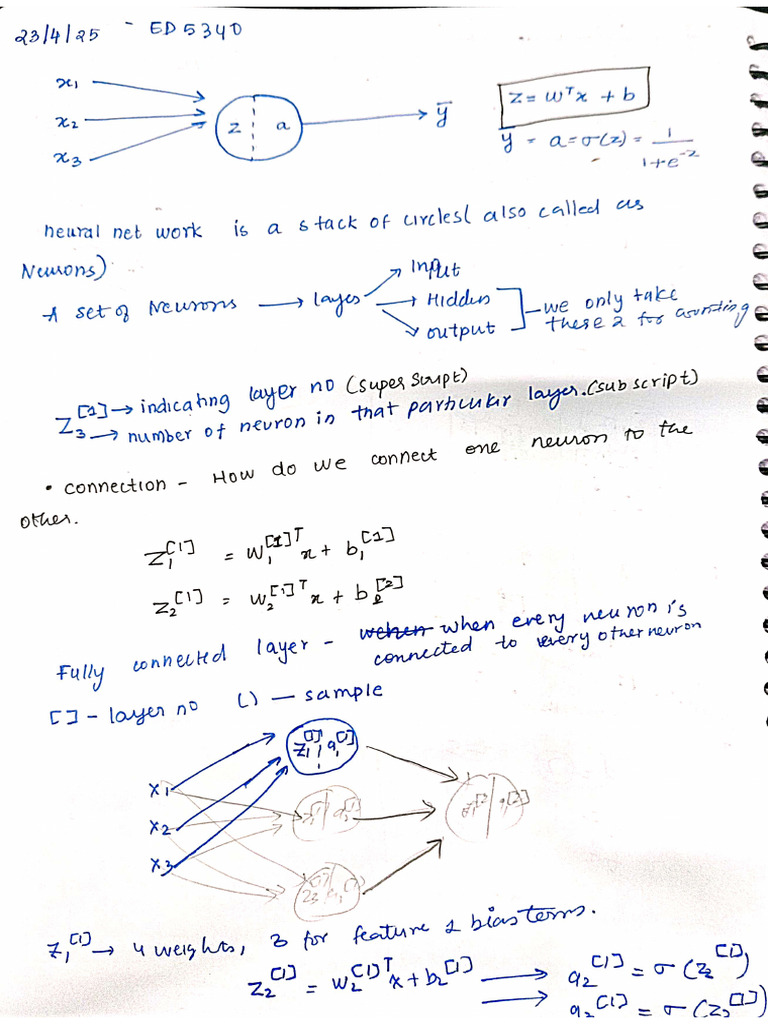 23/4/25 - ED5340
x1
x2
x3
z a
ȳ
z = wᵀx + b
ȳ = a = σ(z) = 1/(1+e^-z)
neural net work is a stack of circles( also called as
Neurons)
A set of Neurons → layers → Input
→ Hidden
→ output
we only take
these 2 for counting
Z3^[1] → indicating layer no (super script)
→ number of neuron in that particular layer. (subscript)
• connection - How do we connect one neuron to the
other.
Z1^[1] = W1^[1]T x + b1^[1]
Z2^[1] = W2^[1]T x + b2^[2]
Fully connected layer - wehen when every neuron is
connected to every other neuron
[] - layer no () — sample
x1
x2
x3
Z1^[1] a1^[1]
Z1^[1] → 4 weights, 3 for feature 1 bias terms.
Z2^[1] = W2^[1]T x + b2^[1] → a2^[1] = σ(Z2^[1])
→ a2^[1] = σ(Z2^[1])